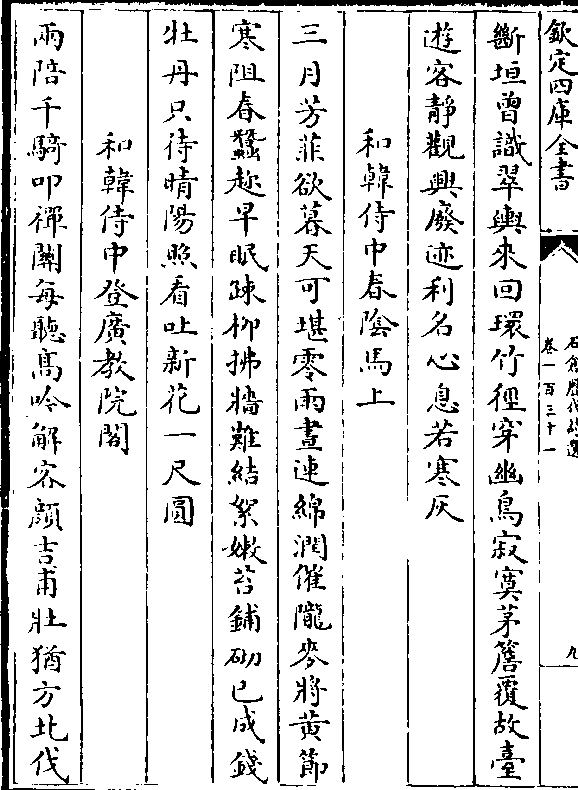 欽定四庫全書
石倉歷代詩選
卷一百三十一
九
斷垣曾識翠輿來回環竹徑穿幽鳥寂寞茅簷覆故臺
遊客靜觀興廢迹利名心息若寒灰
和韓侍中春陰馬上
三月芳菲欲暮天可堪零雨晝連綿潤催隴麥將黃節
寒阻春蠶趂早眠疎柳拂牆難結絮嫩苔鋪砌已成錢
牡丹只待晴陽照看吐新花一尺圓
和韓侍中登廣教院閣
兩陪千騎叩禪關每聽高吟解客顏吉甫壯猶方北伐